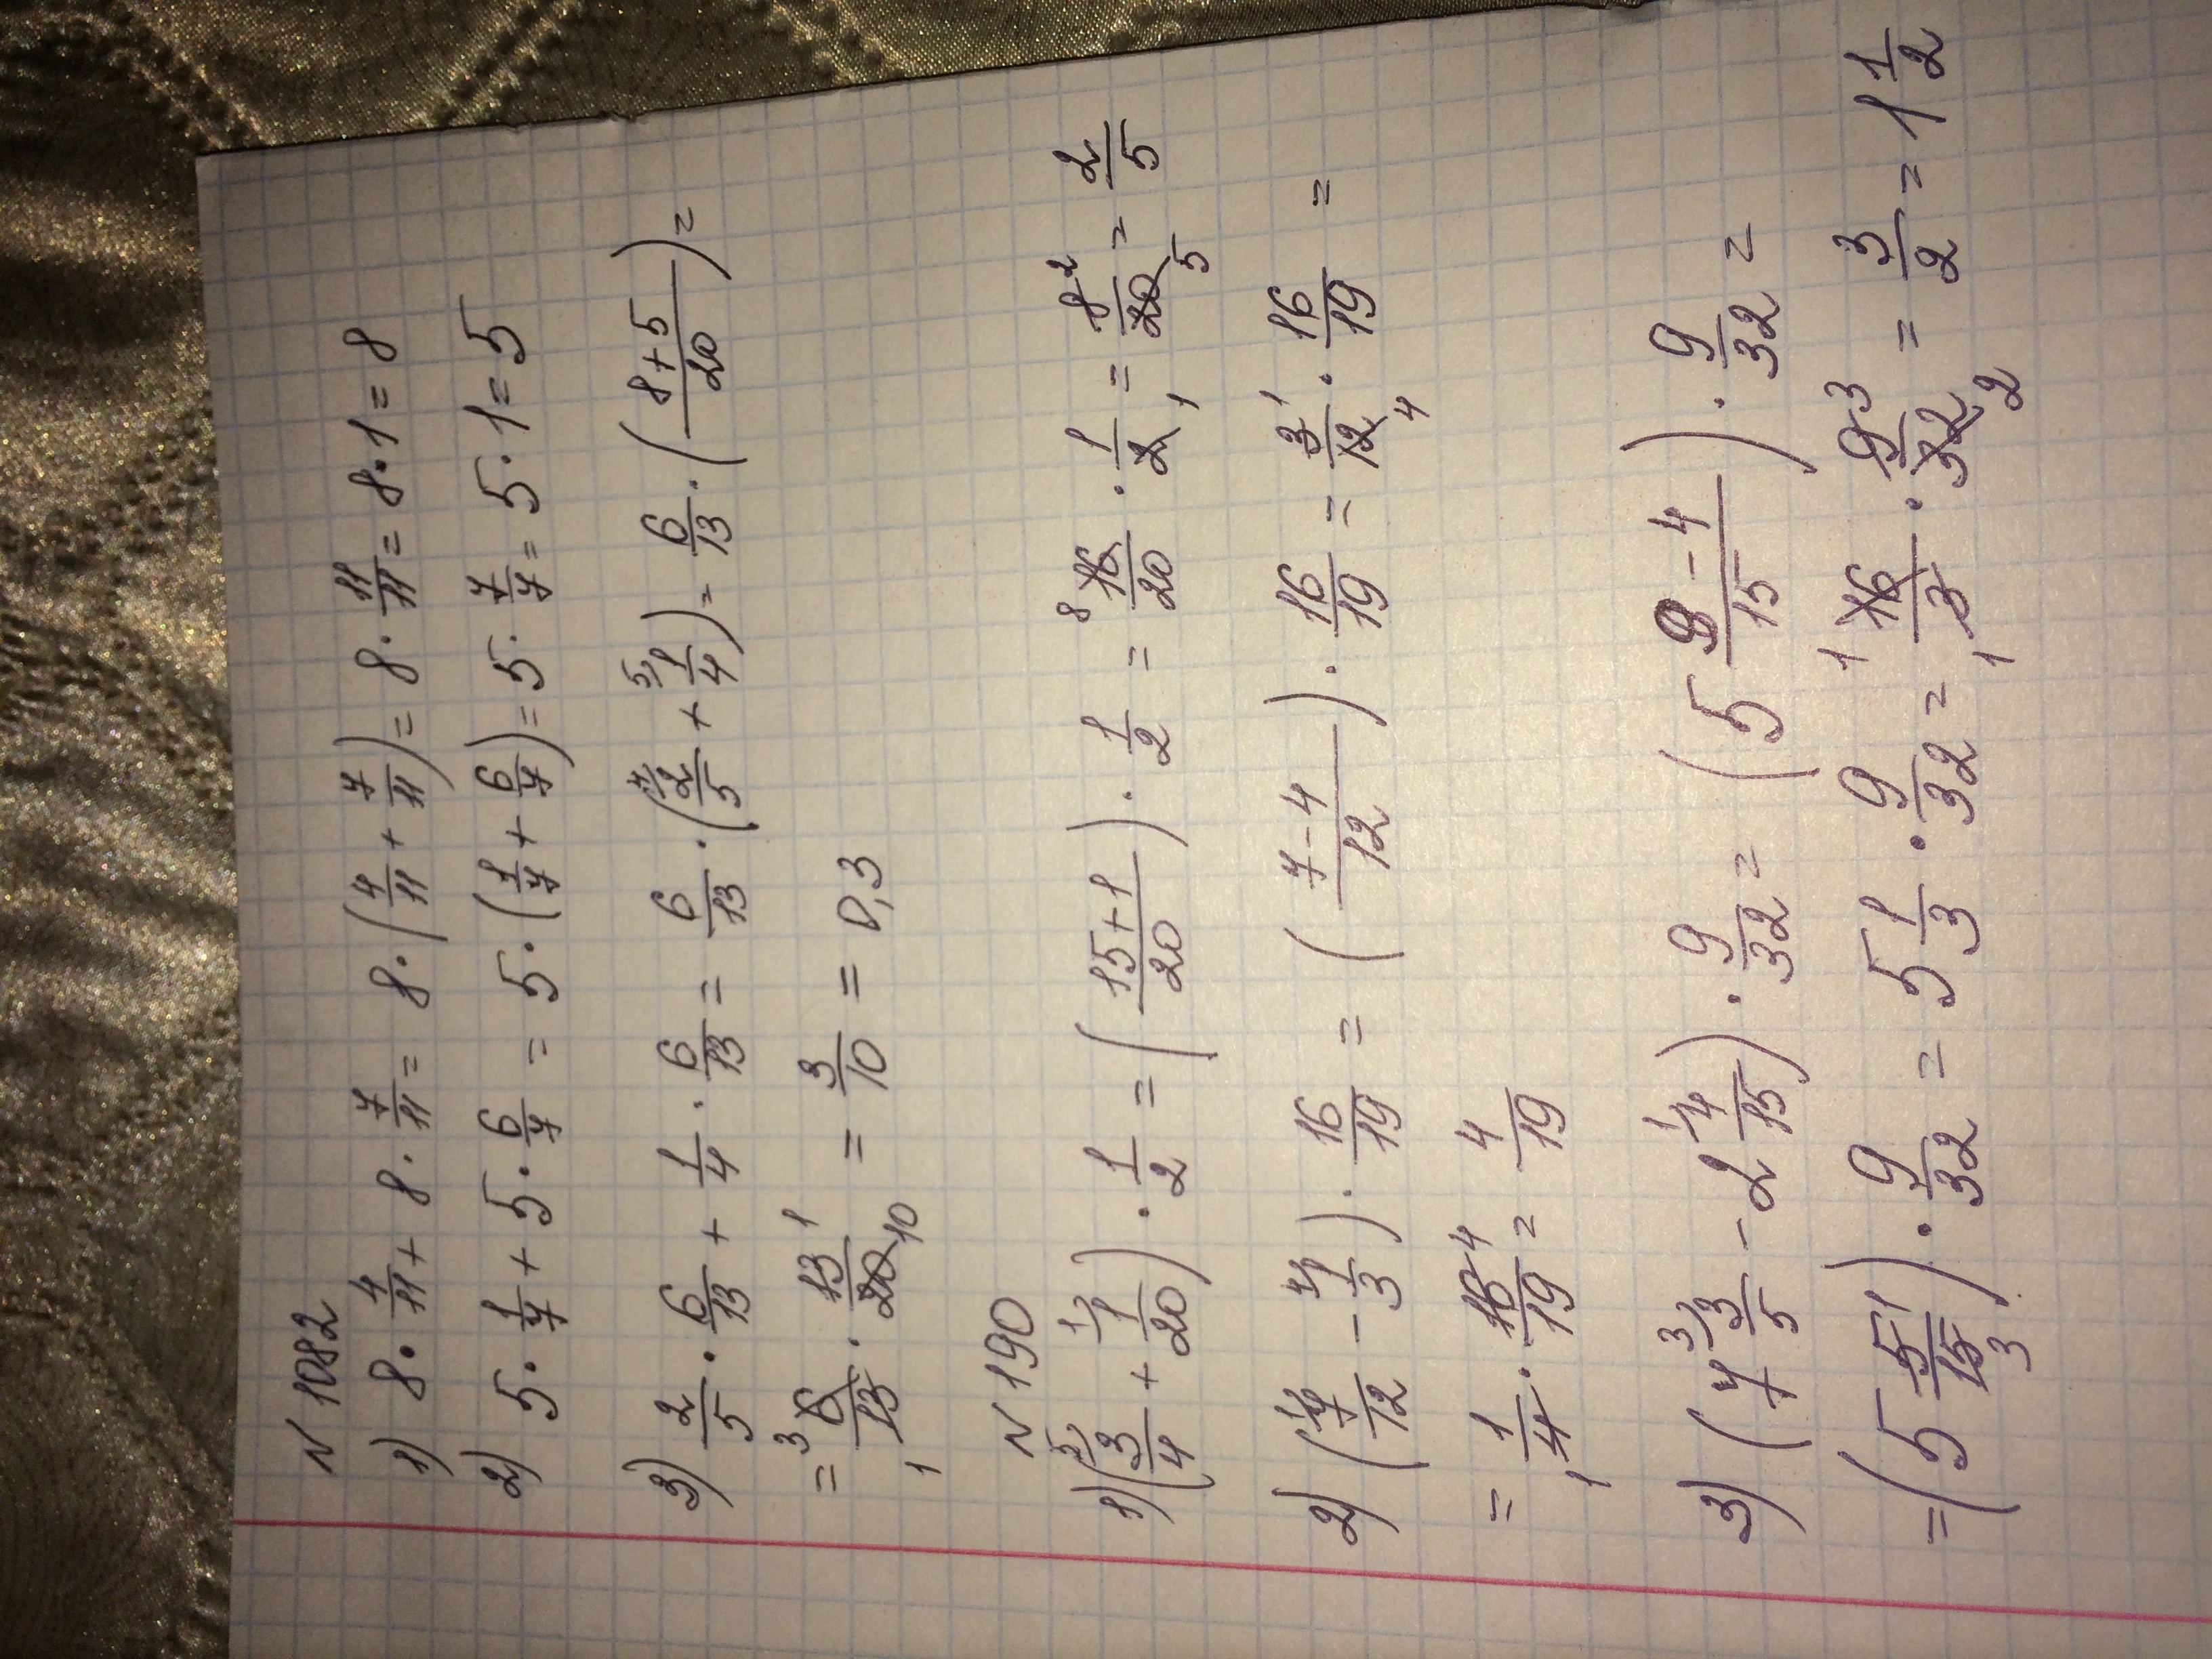 N 1082
1) 8·4/11 + 8·7/11 = 8·(4/11 + 7/11) = 8·11/11 = 8·1 = 8
2) 5·1/7 + 5·6/7 = 5·(1/7 + 6/7) = 5·7/7 = 5·1 = 5
3) 2/5·6/13 + 1/4·6/13 = 6/13·(4/ 2/5 + 5/ 1/4) = 6/13·((8+5)/20) =
= 3 6/13 1 · 13/20 1 10 = 3/10 = 0,3
N 190
1) (5/ 3/4 + 1/ 1/20)·1/2 = ((15+1)/20)·1/2 = 8 16/20 · 1/2 1 = 8/20 2 5 = 2/5
2) (1/ 7/12 - 4/ 1/3)·16/19 = ((7-4)/12)·16/19 = 3/12 1 4 · 16/19 =
= 1/4 1 · 16/19 4 = 4/19
3) (7 3/ 3/5 - 2 1/ 4/15)·9/32 = (5 (9-4)/15)·9/32 =
= (5 5/15 1 3)·9/32 = 5 1/3·9/32 = 1 16/3 1 · 9/32 3 2 = 3/2 = 1 1/2